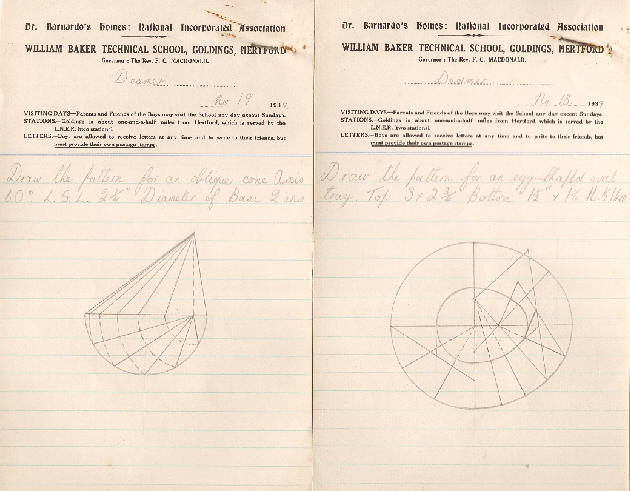 Dr. Barnardo's Homes: National Incorporated Association
WILLIAM BAKER TECHNICAL SCHOOL, GOLDINGS, HERTFORD
Governor: The Rev. F. C. MACDONALD.
No 19
193
VISITING DAYS—Parents and Friends of the Boys may visit the School any day except Sundays.
STATIONS.—Goldings is about one-and-a-half miles from Hertford, which is served by the
L.N.E.R. (two stations).
LETTERS.—Boys are allowed to receive letters at any time and to write to their friends, but
must provide their own postage stamps.
Draw the pattern for an oblique cone Axis
60° L.S.L. 2¼" Diameter of Base 2 ins
Dr. Barnardo's Homes: National Incorporated Association
WILLIAM BAKER TECHNICAL SCHOOL, GOLDINGS, HERTFORD
Governor: The Rev. F. C. MACDONALD.
No 18
193
VISITING DAYS—Parents and Friends of the Boys may visit the School any day except Sundays.
STATIONS.—Goldings is about one-and-a-half miles from Hertford, which is served by the
L.N.E.R. (two stations).
LETTERS.—Boys are allowed to receive letters at any time and to write to their friends, but
must provide their own postage stamps.
Draw the pattern for an egg-shaped oval
tray. Top 3 x Bottom